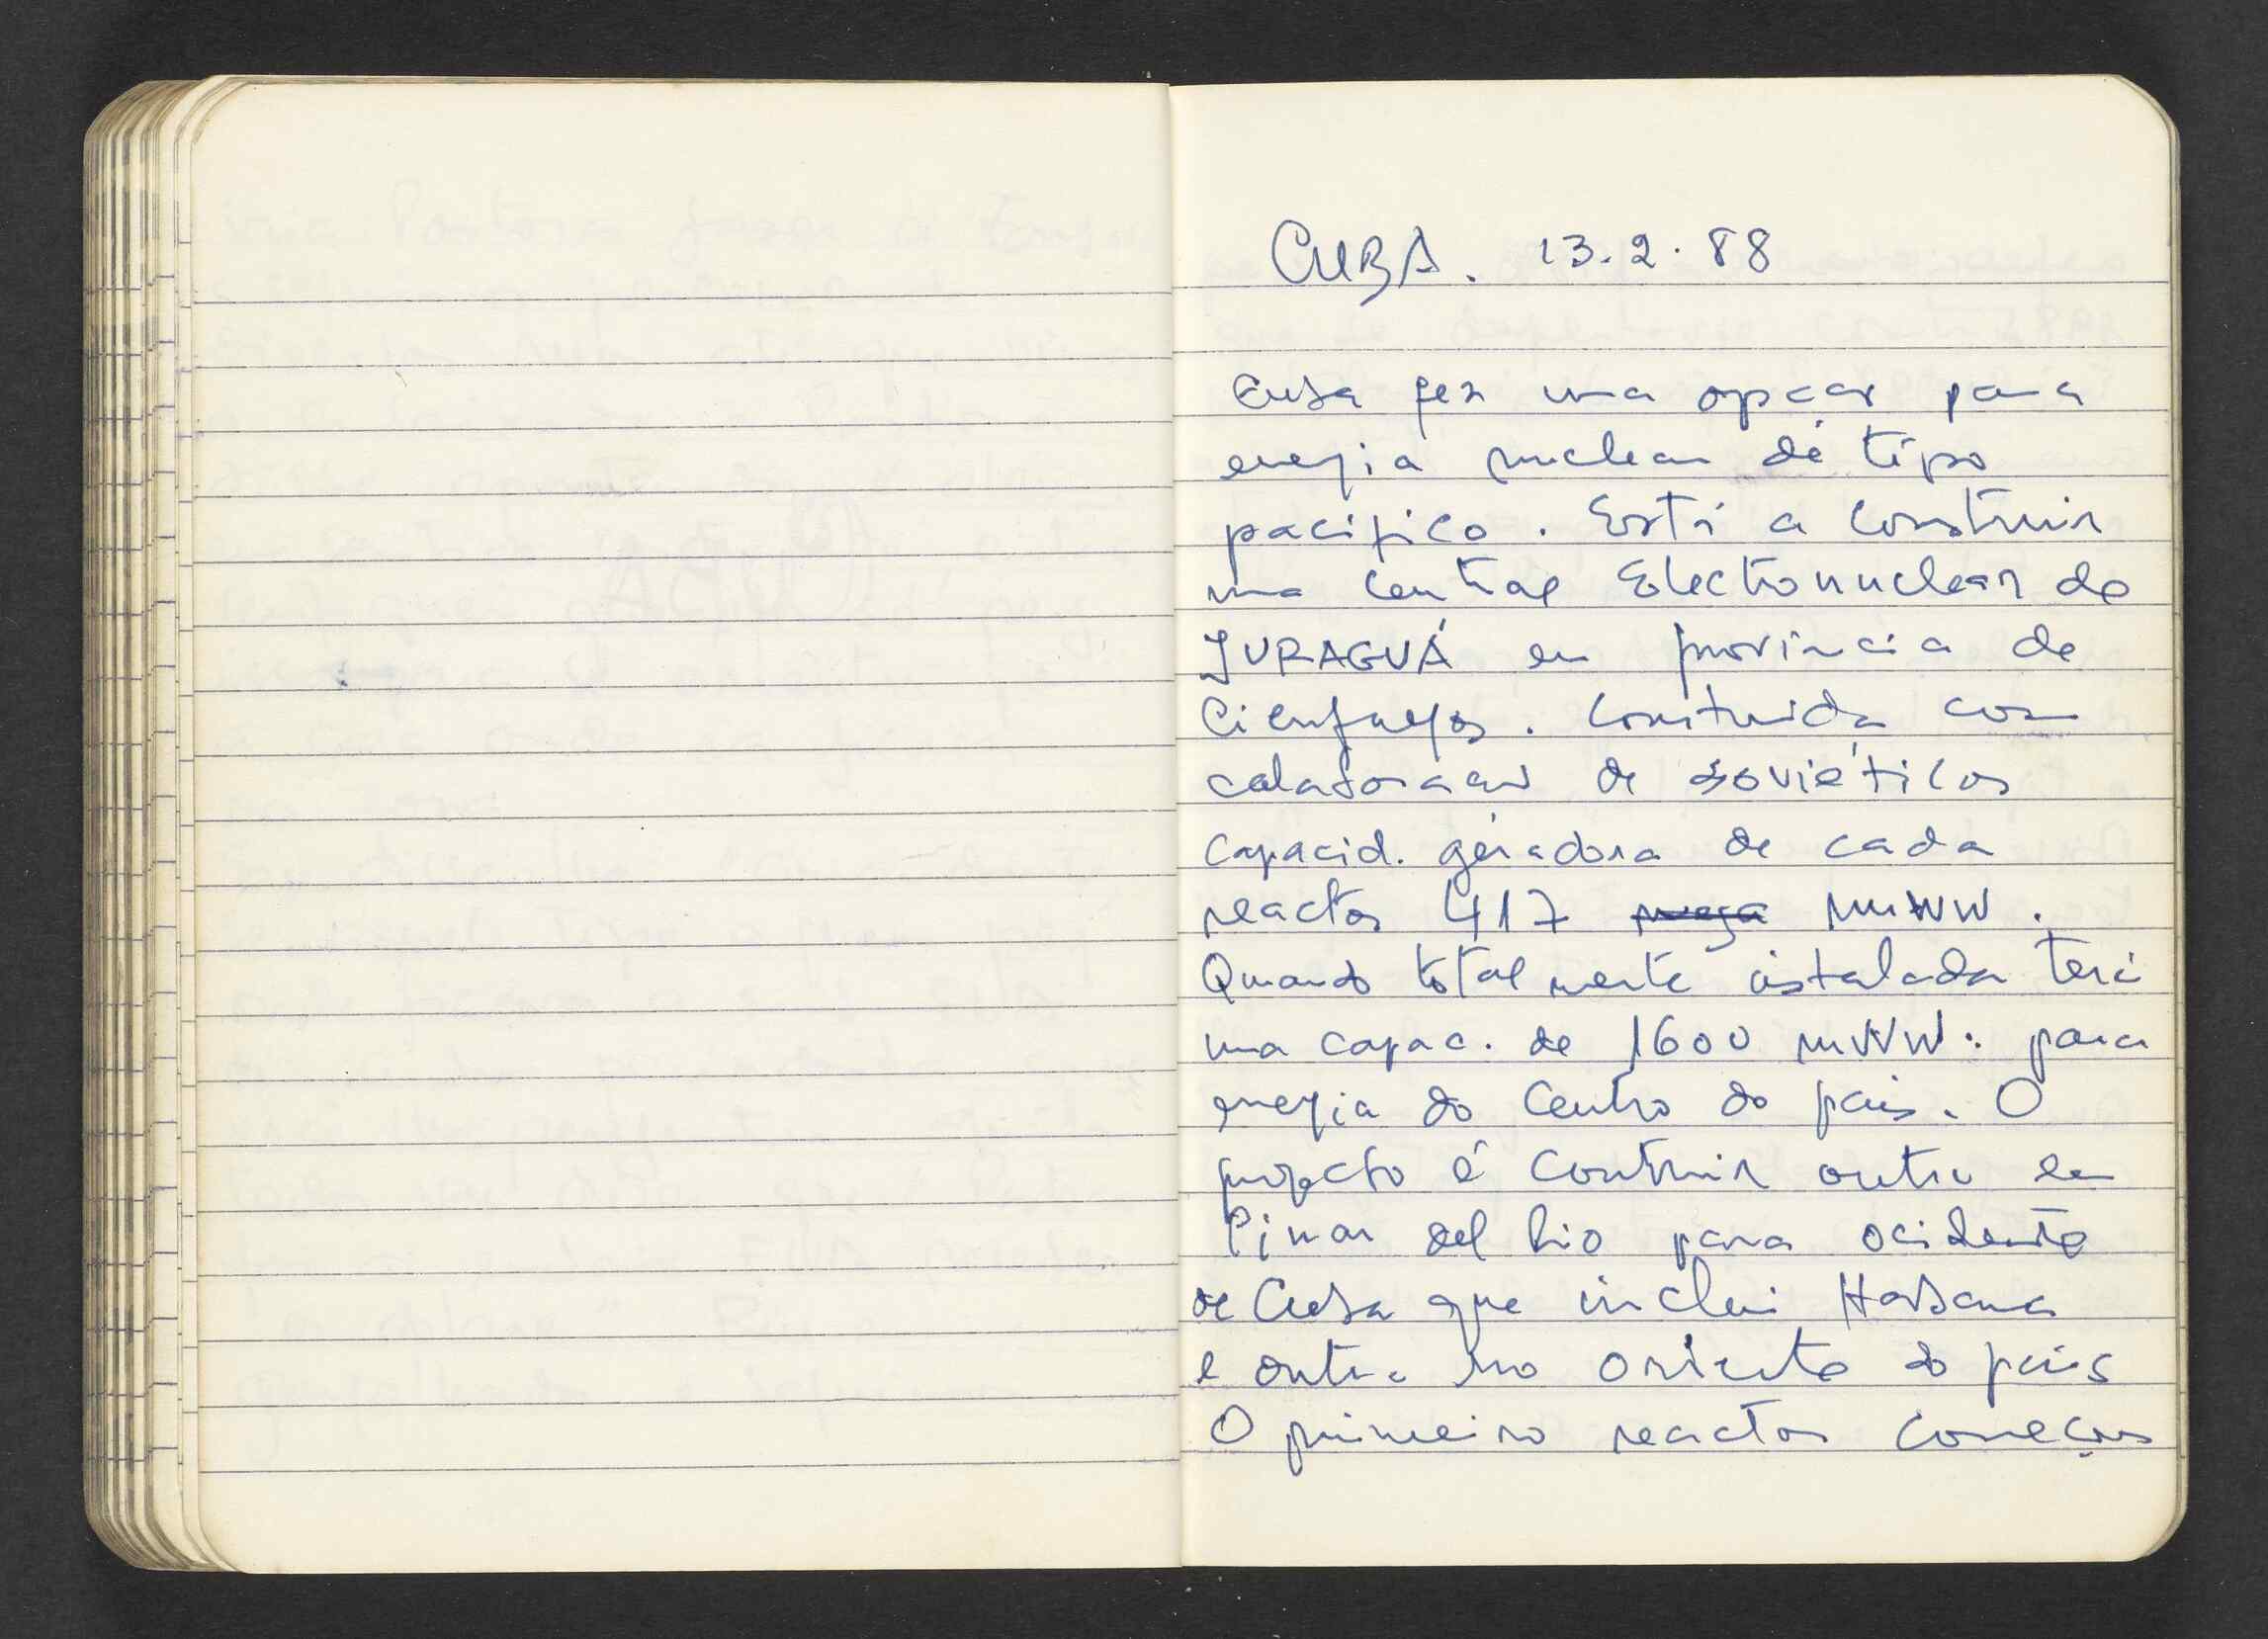 CUBA. 13.2.88
Cuba fez uma opcao para
energia nuclear de tipo
pacifico. Está a construir
uma central Electronuclear de
JURAGUÁ em província de
Cienfuegos. Construida com
colaboracao de soviéticos
capacid. geradora de cada
reactor 417 mega mWW.
Quando totalmente instalada terá
uma capac. de 1600 mWW. para
energia do centro do país. O
projecto é construir outra em
Pinar del Rio para ocidente
de Cuba que inclui Habana
e outra no oriente do país
O primeiro reactor começou